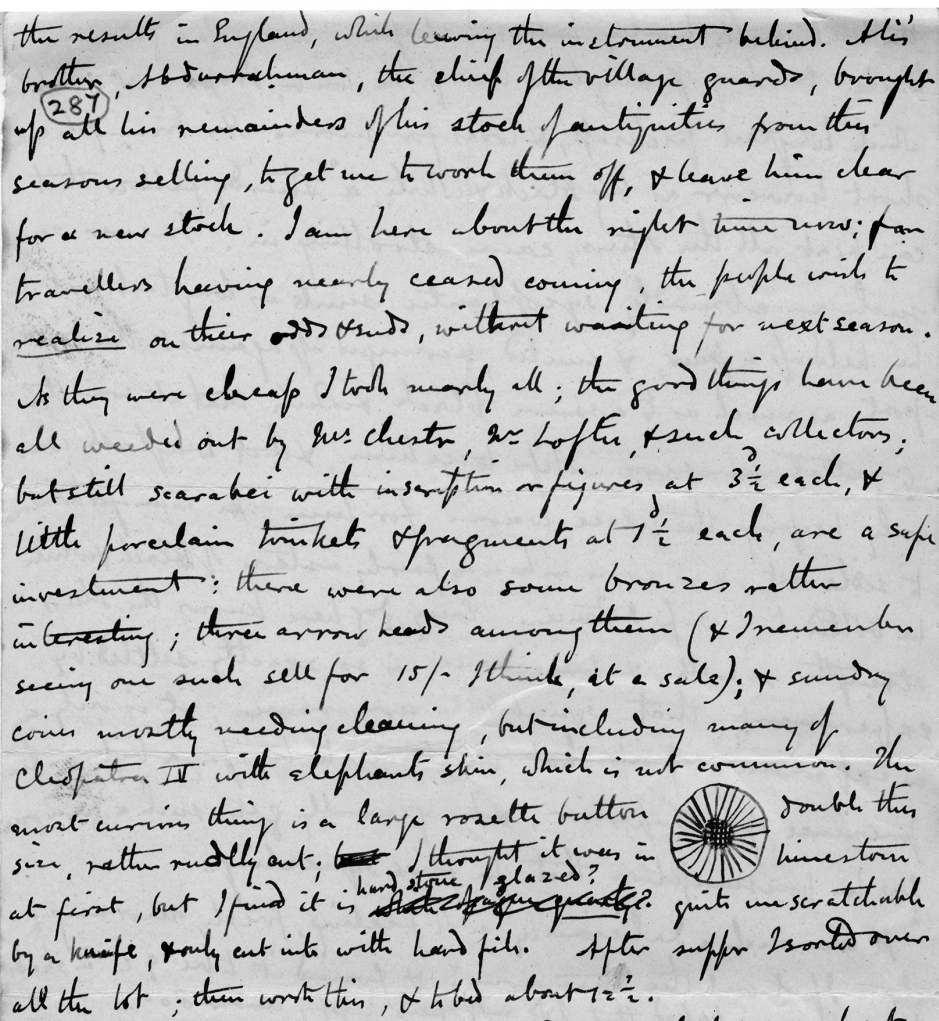 the results in England, while leaving the instrument behind. Ali's
brother, Abdurrahman, the chief of the village guards, brought
287
up all his remainders of his stock of antiquities from this
seasons selling, to get me to work them off, & leave him clear
for a new stock. I am here about the right time now; for
travellers having nearly ceased coming, the people wish to
realise on their odds & ends, without waiting for next season.
As they were cheap I took nearly all; the good things have been
all weeded out by Mr. Chester, Mr Loftie, & such collectors;
but still scarabei with inscription or figures, at 3½d each, &
little porcelain trinkets & fragments at 1½d each, are a safe
investment: there were also some bronzes rather
interesting; three arrow heads among them (& I remember
seeing one such sell for 15/- I think, at a sale); & sundry
coins mostly needing cleaning, but including many of
Cleopatra IV with elephants skin, which is not common. The
most curious thing is a large rosette button double this
size, rather rudely cut; I thought it was in limestone
hard stone glazed?
at first, but I find it is quite unscratchable
by a knife, & only cut into with hard file. After supper I sorted over
all the lot; then wrote this, & to bed about 12½.